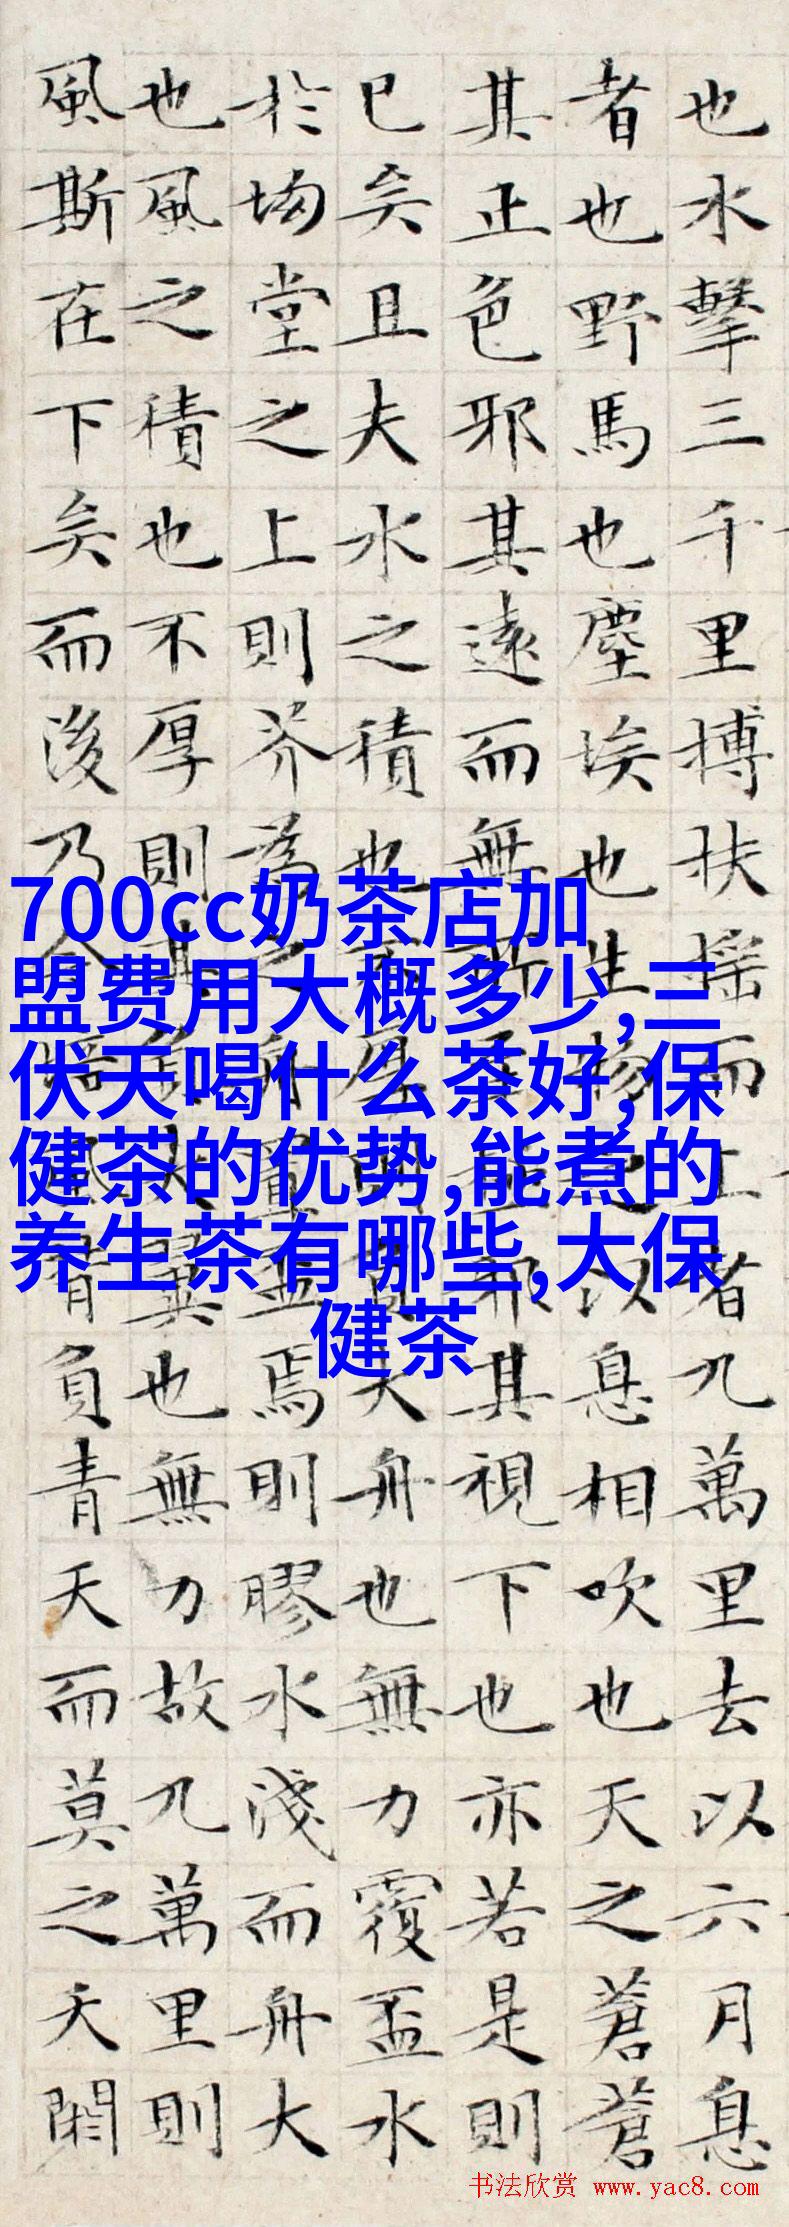 也水擊三千里搏扶搖而上者九萬里去以六月息
者也野馬也塵埃也生物之以息相吹也天之蒼蒼
其正色邪其遠而無所至極邪其視下也亦若是則
已矣且夫水之積也不厚則負大舟也無力覆盃水
於坳堂之上則芥為之舟置盃焉則膠水淺而舟大
也風之積也不厚則其負大翼也無力故九萬里則
風斯在下矣而後乃今培風背負青天而莫之夭閼
700cc奶茶店加
盟费用大概多少,三
伏天喝什么茶好,保
健茶的优势,能煮的
养生茶有哪些,大保
健茶
书法欣赏 www.yac8.com